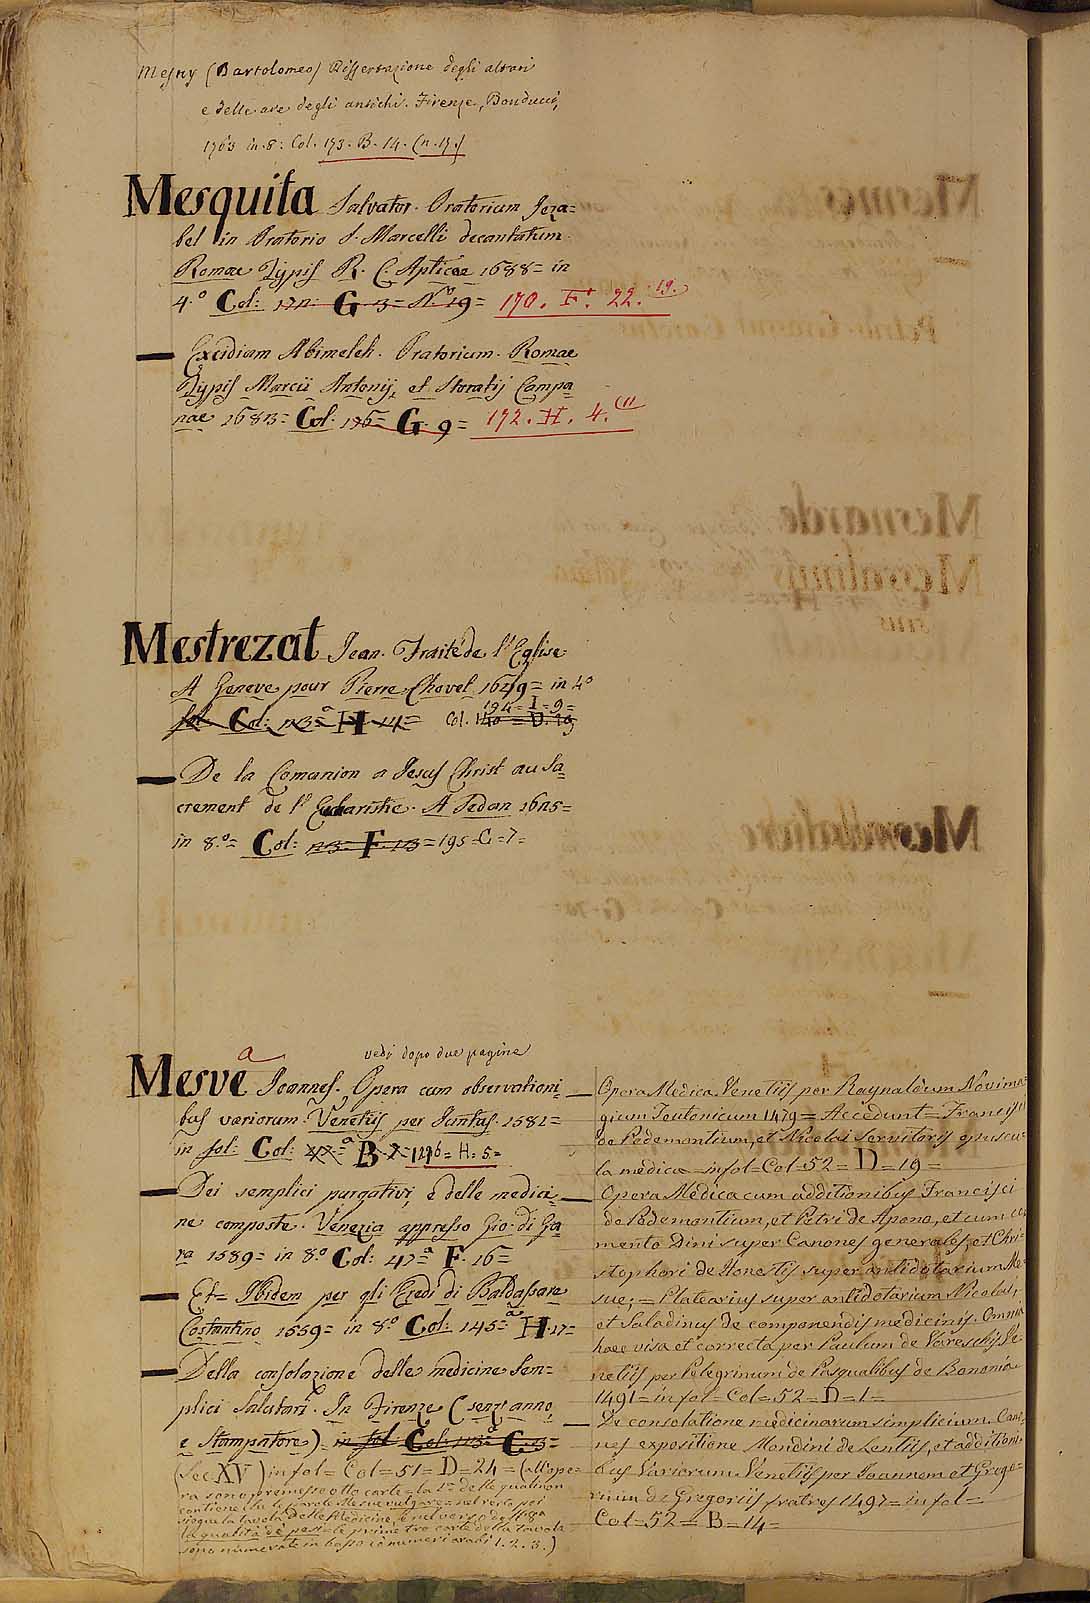 Mesny (Bartolomeo) Dissertazione degli altari
e delle are degli antichi. Firenze, Bonducci,
1763 in 8: Col. 173. B. 14. (n. 17.)
Mesquita Salvator. Oratorium Jeza=
bel in Oratorio S. Marcelli decantatum.
Romae Typis R. C. Apticae 1688= in
4.º Col: G. 13= N.º 19= 170. F. 22. 19.
Excidium Abimelek. Oratorium. Romae
Typis Marcii Antonij, et Horatij Campa
nae 1683= Col: 176= G. 9= 172. H. 4. (11
Mestrezat Jean. Traité de l'Eglise.
A Geneve pour Pierre Chovet 1649= in 4º
194= I= 9=
fol. Col: 113ª= H. 14= Col. 140= D. 19
De la Comunion a Jesus Christ au Sa
crement de l'Eucharistie. A Sedan 1625=
in 8.º= Col: F. 13= 195= C= 7=
a vedi dopo due pagine
Mesve Joannes. Opera cum observationi
bus variorum. Venetiis per Juntas. 1581=
in fol: Col: 47=ª B 2= 146= H= 5=
Dei semplici purgativi, e delle medici=
ne composte. Venezia appresso Gio. di Ga
ra 1589= in 8º Col: 47=ª F. 16=
Et= Ibidem per gli Eredi di Baldassare
Costantino 1559= in 8º Col: 145=ª H. 17=
Della consolazione delle medicine Sem=
plici Solutari. In Firenze (senz'anno,
e Stampatore) in fol Col: 113=ª C. 13=
(Sec. XV) in fol= Col= 51= D= 24= (all'ope=
ra sono premesse otto carte= la 1ª delle quali non
contiene che le parole Mesue vulgare= nel verso poi
siegue la tavola delle Medicine, e nel verso dell'8ª
la qualità de pesi= le prime tre carte della tavola
sono numerate in basso co numeri arabi 1. 2. 3.)
Opera Medica. Venetiis per Raynaldum Novima=
gium Teutonicum 1479= Accedunt= Francisci
de Pedemontium, et Nicolai Servitoris opuscu=
la medica= in fol= Col= 52= D= 19=
Opera Medica cum additionibus Francisci
de Pedemontium, et Petri de Apono, et cum co
mento Dini super Canones generales, et Chri=
stophori de Honestis super antidotarium Me=
sue;= Platearius super antidotarium Nicolai,
et Saladinus de componendis medicinis. Omnia
haec visa et correcta per Paulum de Vareschis Ve=
netiis per Pelegrinum de Pasqualibus de Bononia
1491= in fol= Col= 52= D= 1=
De consolatione medicinarum simplicium. Cano=
nes expositione Mondini de Lentiis, et additioni=
bus Variorum. Venetiis per Joannem et Grego=
rium de Gregoriis fratres 1497= in fol=
Col= 52= B= 14=